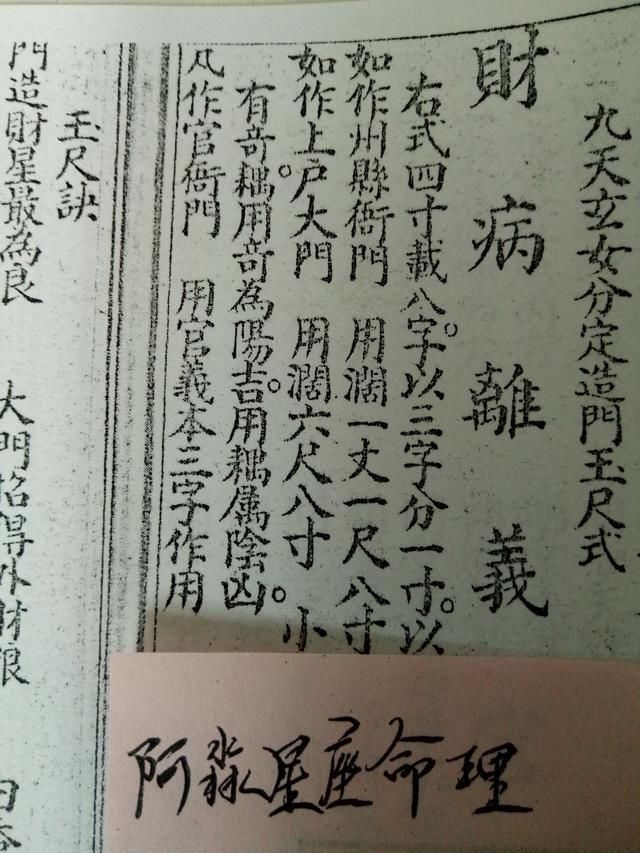 九天玄女分定造門玉尺式
財病離義
右式四寸載八字。以三字分一寸。以
如作州縣衙門 用濶一丈一尺八寸
如作上戶大門 用濶六尺八寸 小
有奇耦用奇為陽吉。用耦属陰凶。
凡作官衙門 用官義本三字作用
玉尺訣
門造財星最為良 大門招得外財
阿淼星座命理